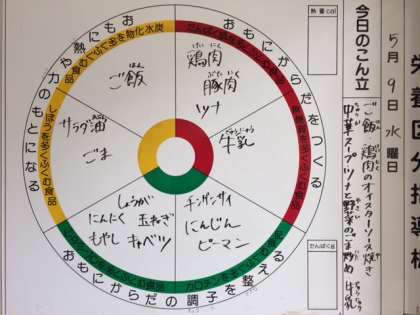 5月9日水曜日
今日のこん立
ご飯 鶏肉のオイスターソース焼き
中華スープ ツナと野菜のごま炒め 牛乳
熱量cal
たんぱく
おもにからだをつくる
おもにからだの調子を整える
おもに熱や力のもとになる
たんぱく質を多くふくむ食品
炭水化物を多くふくむ食品
しぼうを多くふくむ食品
鶏肉
豚肉
ツナ
牛乳
ご飯
サラダ油
ごま
しょうが
にんにく 玉ねぎ
もやし キャベツ
チンゲンサイ
にんじん
ピーマン